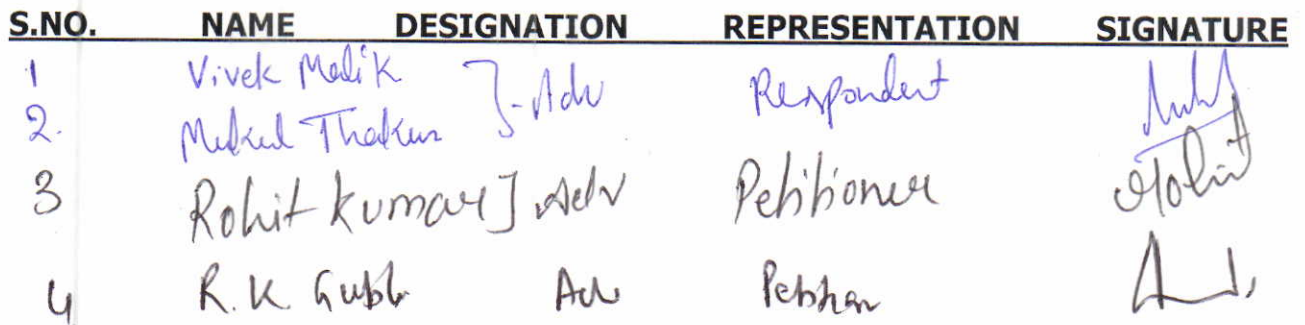 S.NO. NAME DESIGNATION REPRESENTATION SIGNATURE
1 Vivek Malik ]- Adv Respondent
2. Mukul Thakur
3 Rohit Kumar ] Adv Petitioner Rohit
4 R.K. Gupta Adv Petitioner